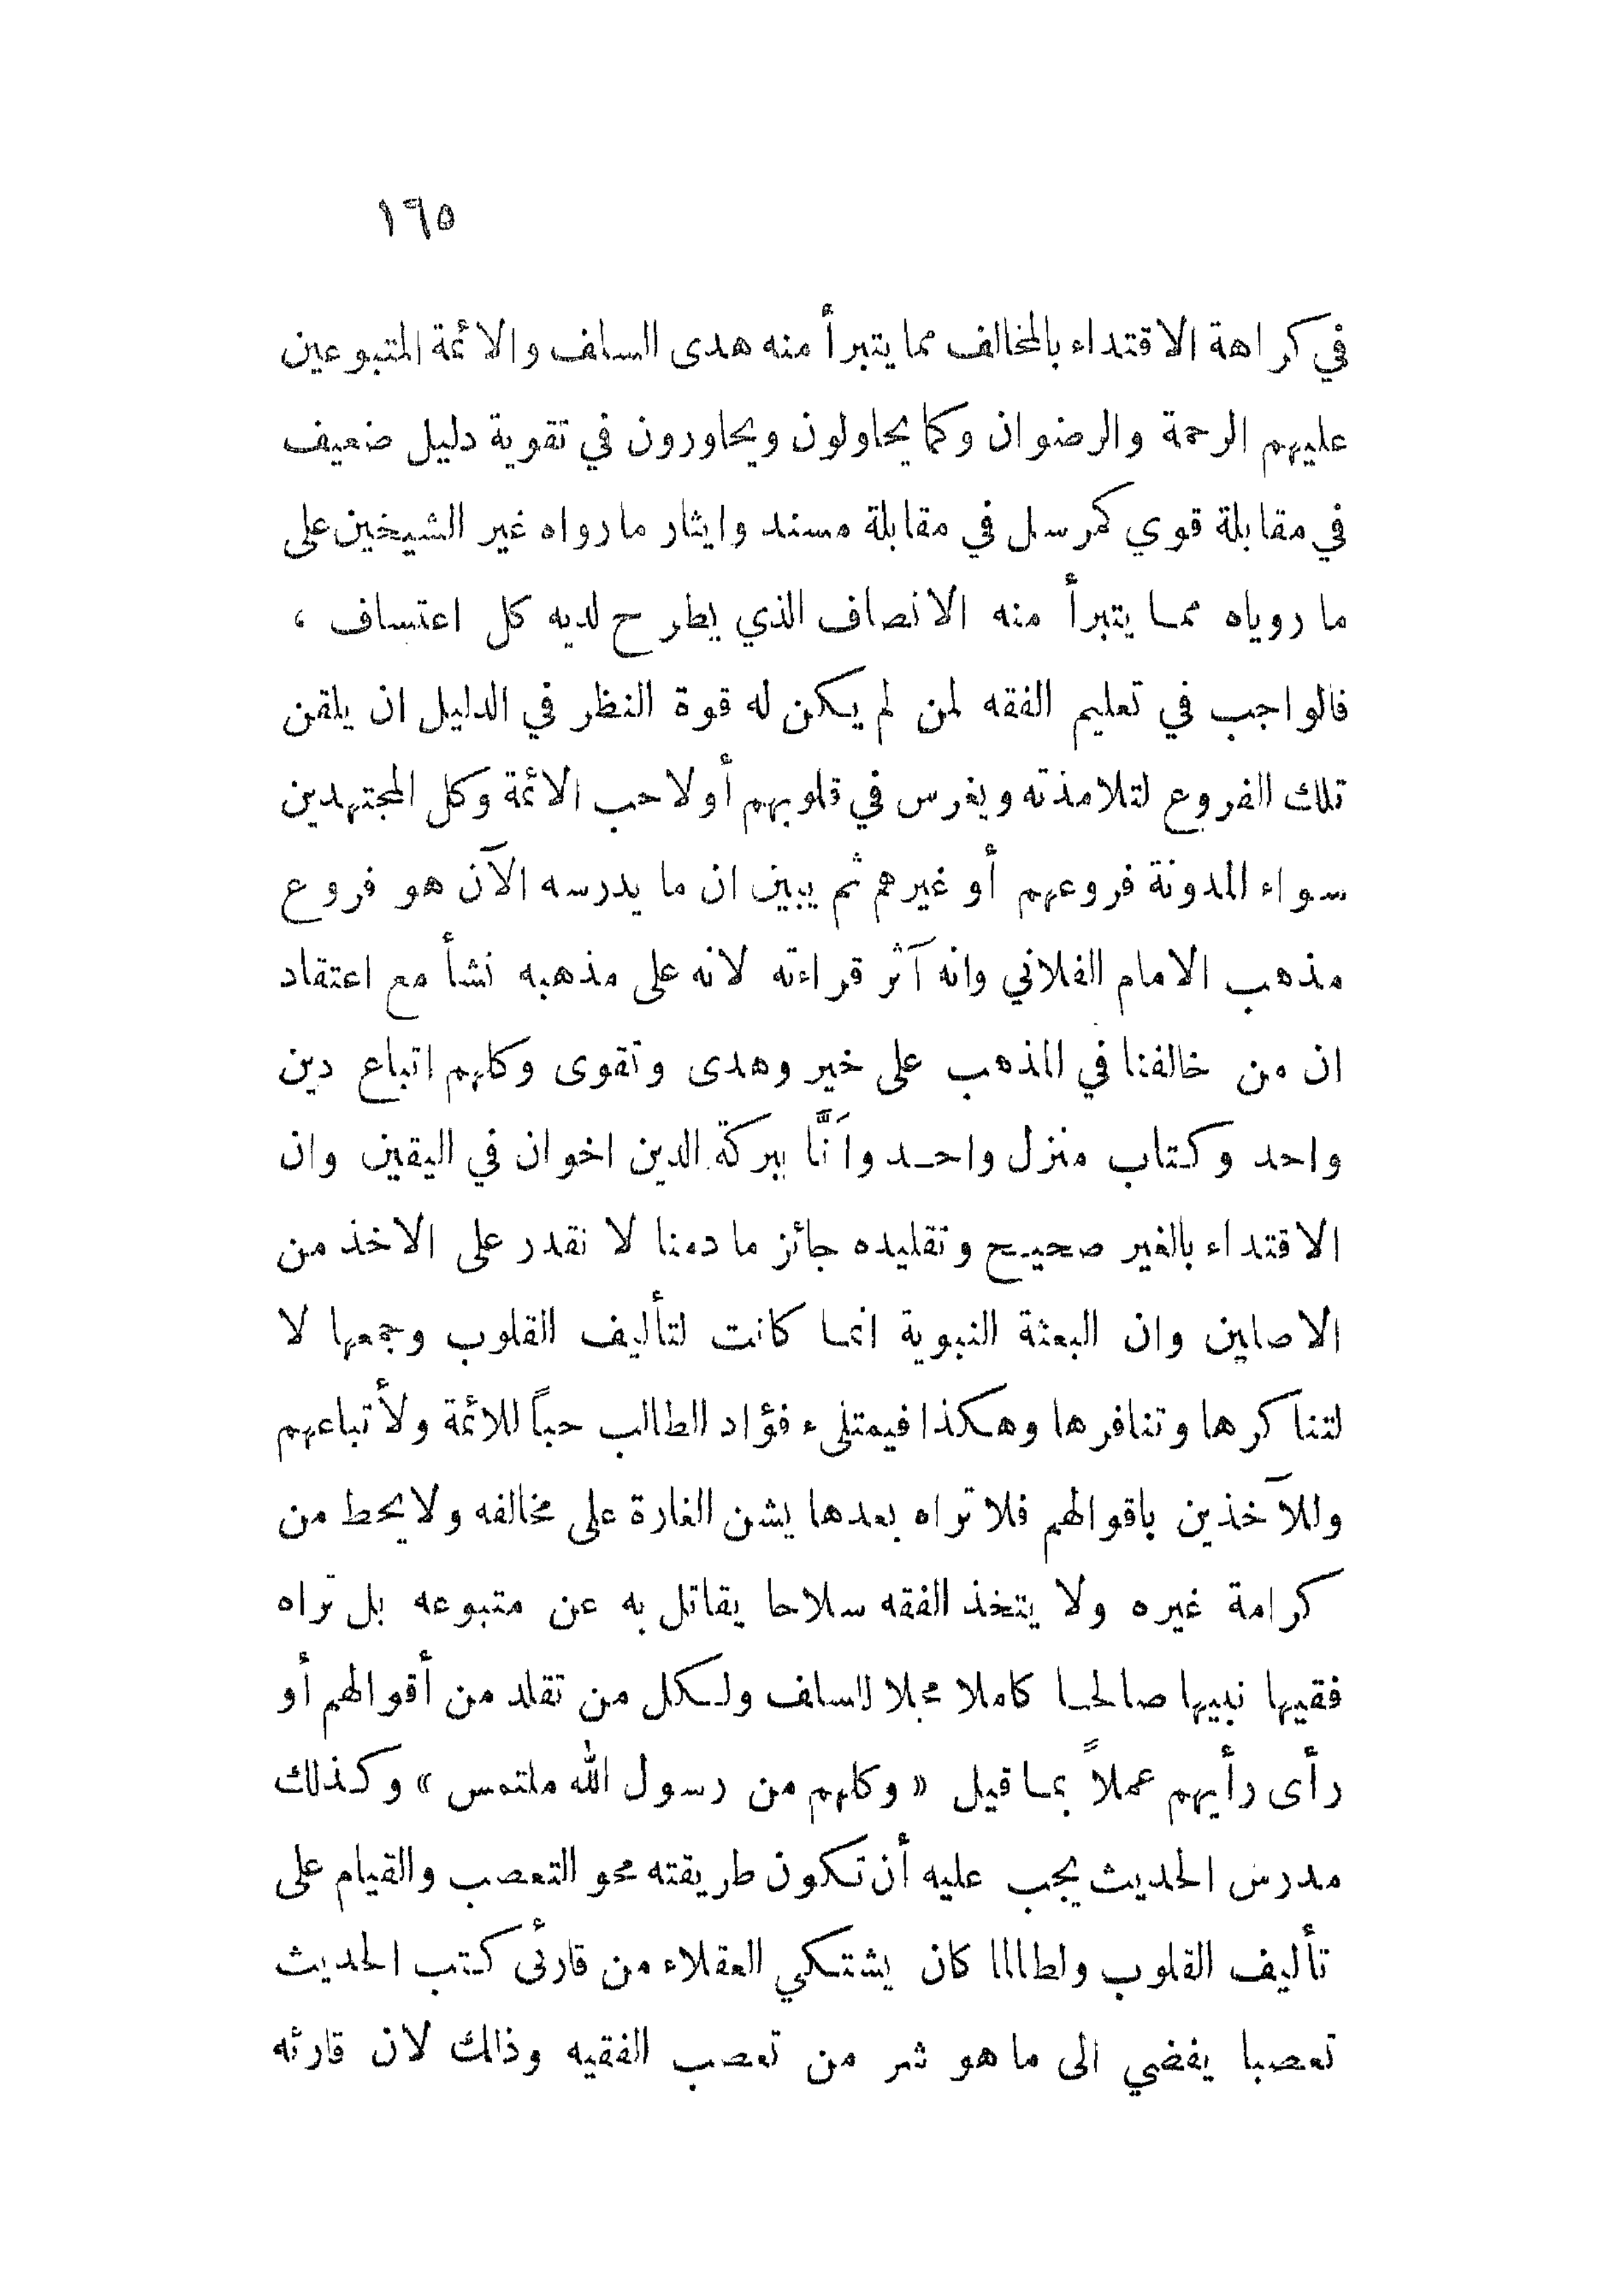 ١٦٥
في كراهة الاقتداء بالمخالف مما يتبرأ منه هدى السلف والائمة المتبوعين
عليهم الرحمة والرضوان وكما يحاولون ويحاورون في تقوية دليل ضعيف
في مقابلة قوي كمرسل في مقابلة مسند وايثار ما رواه غير الشيخين على
ما روياه ممـا يتبرأ منه الانصاف الذي يطرح لديه كل اعتساف ،
فالواجب في تعليم الفقه لمن لم يكن له قوة النظر في الدليل ان يلقن
تلك الفروع لتلامذته ويغرس في قلوبهم أولا حب الائمة وكل المجتهدين
سواء المدونة فروعهم أو غيرهم ثم يبين ان ما يدرسه الآن هو فروع
مذهب الامام الفلاني وانه آثر قراءته لانه على مذهبه نشأ مع اعتقاد
ان من خالفنا في المذهب على خير وهدى وتقوى وكلهم اتباع دين
واحد وكتاب منزل واحـد وانَّا ببركة الدين اخوان في اليقين وان
الاقتداء بالغير صحيح وتقليده جائز ما دمنا لا نقدر على الاخذ من
الاصلين وان البعثة النبوية انمـا كانت لتأليف القلوب وجمعها لا
لتناكرها وتنافرها وهكذا فيمتلىء فؤاد الطالب حباً للائمة ولأتباعهم
وللآخذين باقوالهم فلا تراه بعدها يشن الغارة على مخالفه ولا يحط من
كرامة غيره ولا يتخذ الفقه سلاحا يقاتل به عن متبوعه بل تراه
فقيها نبيها صالحـا كاملا مجلا للسلف ولكل من تقلد من أقوالهم أو
رأى رأيهم عملاً بمـا قيل « وكلهم من رسول الله ملتمس » وكذلك
مدرس الحديث يجب عليه أن تكون طريقته محو التعصب والقيام على
تأليف القلوب ولطالما كان يشتكي العقلاء من قارئى كتب الحديث
تعصبا يفضي الى ما هو شر من تعصب الفقيه وذلك لان قارئه